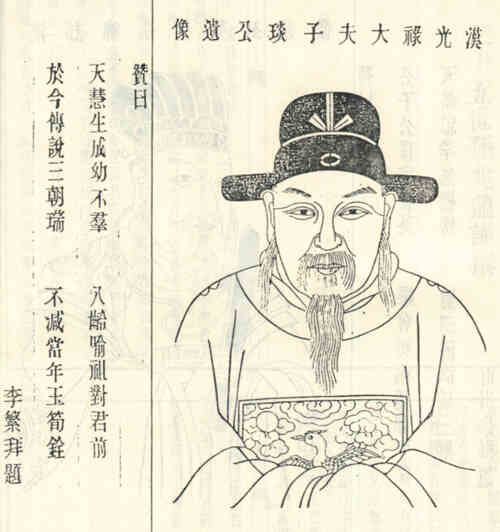 漢光祿大夫子琰公遺像
贊曰
天慧生成幼不羣　八齡喻祖對君前
於今傳說三朝瑞　不減當年玉筍銓
李繁拜題